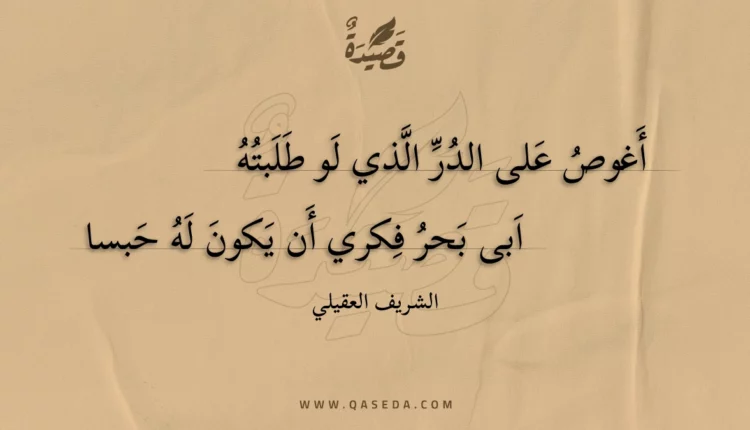 قَصِيدَةٌ
أَغوصُ عَلى الدُرِّ الَّذي لَو طَلَبتُهُ
اَبى بَحرُ فِكري أَن يَكونَ لَهُ حَبسا
الشريف العقيلي
WWW.QASEDA.COM